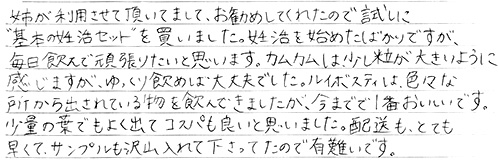 姉が利用させて頂いてまして、お勧めしてくれたので試しに
"基本の妊活セット"を買いました。妊活を始めたばかりですが、
毎日飲んで頑張りたいと思います。カムカムは少し粒が大きいように
感じますが、ゆっくり飲めば大丈夫でした。ルイボスティは、色々な
所から出されている物を飲んできましたが、今までで1番おいしいです。
少量の葉でもよく出てコスパも良いと思いました。配送も、とても
早くて、サンプルも沢山入れて下さってたので有難いです。